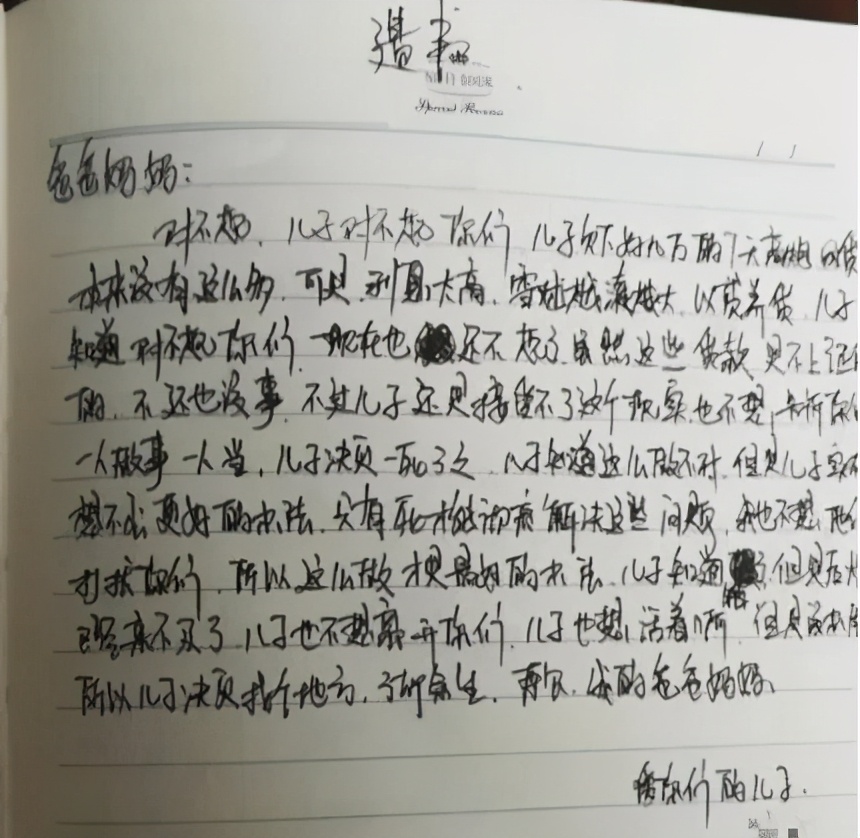 遗书
爸爸妈妈：
对不起，儿子对不起你们 儿子欠下好几万的7天高炮 网贷
本来没有这么多，可是，利息太高，雪球越滚越大，以贷养贷，儿子
知道对不起你们，现在也 还不起了 虽然这些贷款 是不上征信
的，不还也没事，不过儿子还是接受不了这个现实，也不想，告诉你们
一人做事一人当，儿子决定一死了之，儿子知道这么做不对，但是儿子实在
想不出更好的办法，只有死才能彻底解决这些问题，我也不想他们
打扰你们，所以这么做才是最好的办法，儿子知道 但是后
已经来不及了，儿子也不想离开你们，儿子也想，活着 但是没办法
所以儿子决定找个地方，了却余生，再见，我的爸爸妈妈
你们的儿子.